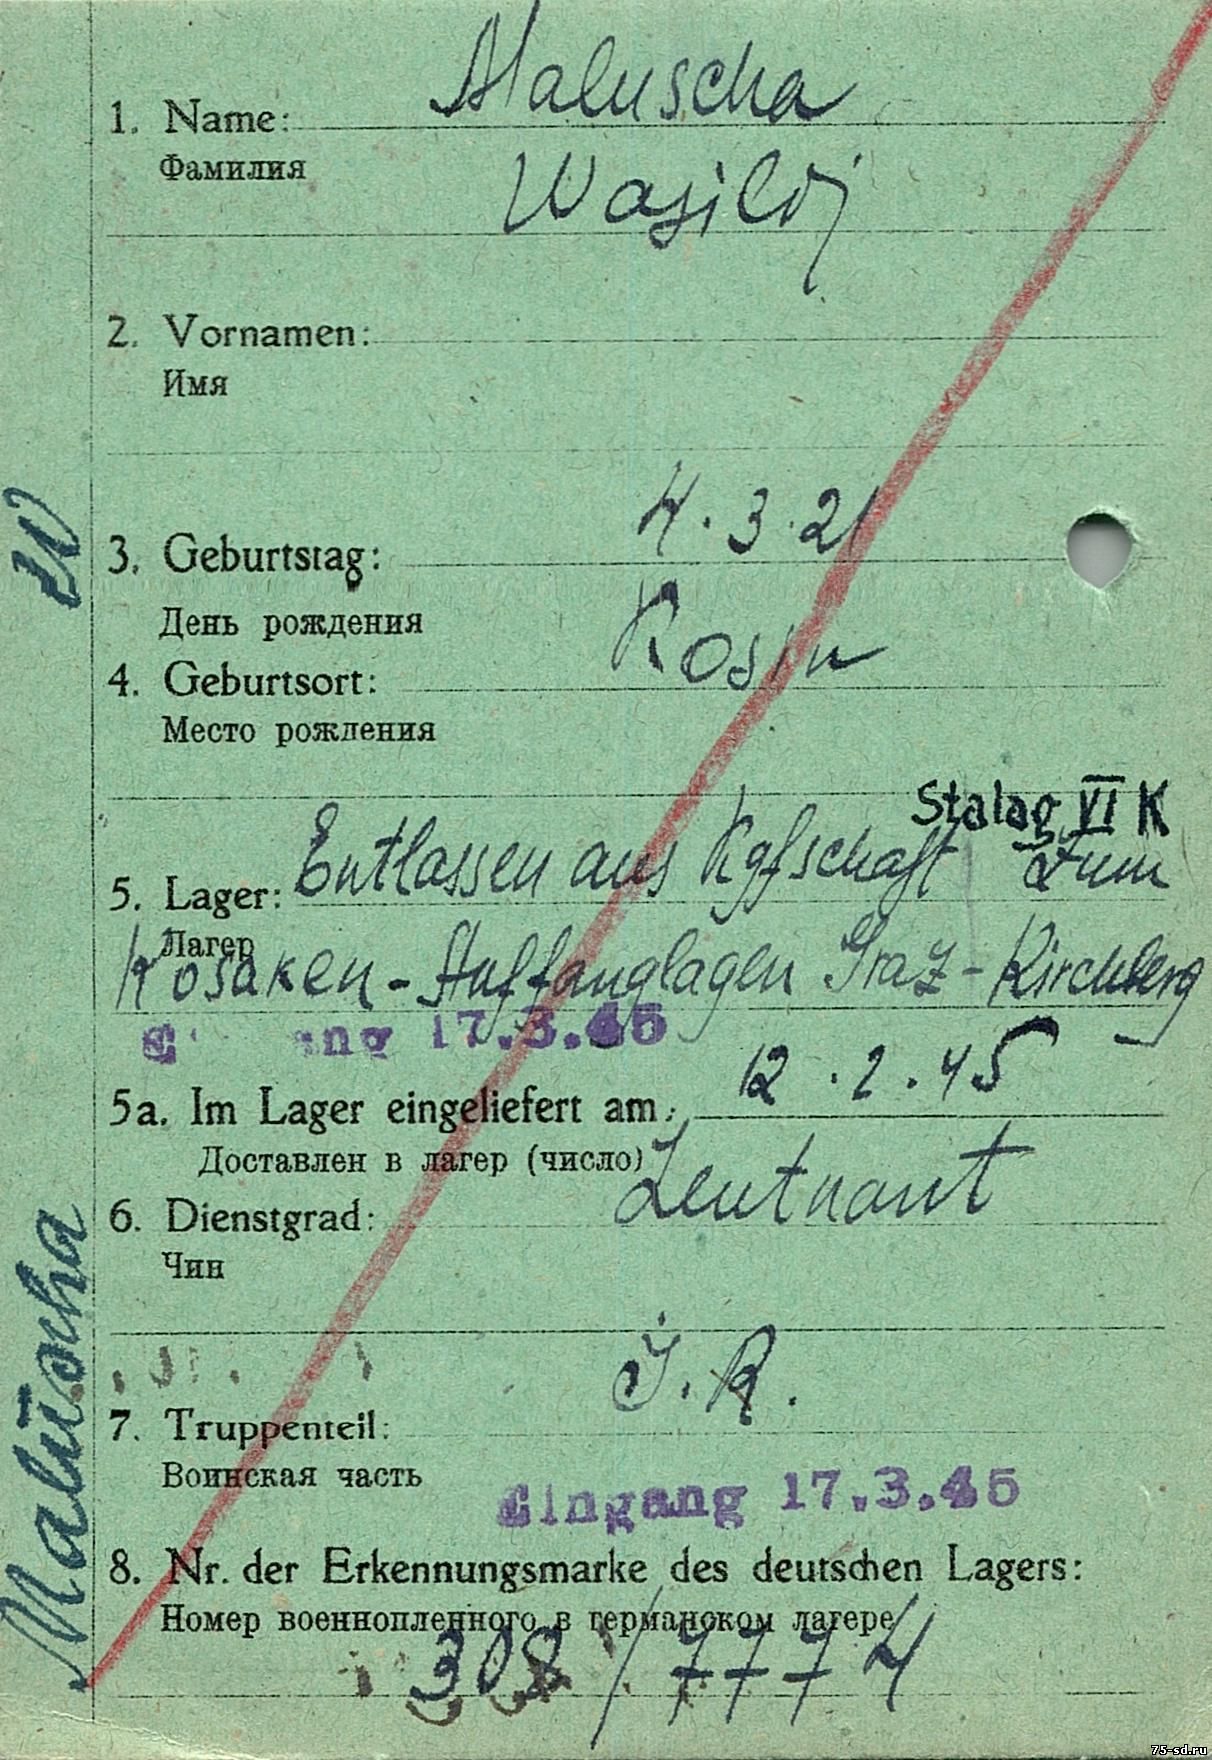 1. Name: Maluscha
Фамилия
Wasilij
2. Vornamen:
Имя
3. Geburtstag: 4.3.21
День рождения
4. Geburtsort: Rosin
Место рождения
Stalag VI K
5. Lager: Entlassen aus Kgfschaft zum
Лагер
Kosaken-Auffanglagen Graz-Kirchberg
Eingang 17.3.45
5a. Im Lager eingeliefert am: 12.2.45
Доставлен в лагер (число)
6. Dienstgrad: Leutnant
Чин
J.R.
7. Truppenteil:
Воинская часть
Eingang 17.3.45
8. Nr. der Erkennungsmarke des deutschen Lagers:
Номер военнопленного в германском лагере
308/7774
Maluscha
W
75-sd.ru